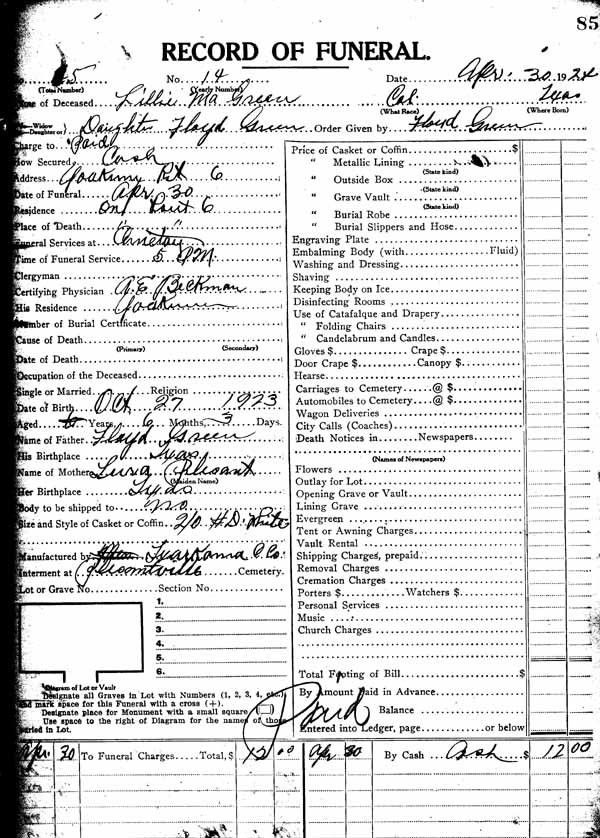 85
RECORD OF FUNERAL.
No. 14 Date Apr. 30 1924
(Total Number) (Yearly Number)
Name of Deceased Lillie Ma Green Col. Texas
(What Race) (Where Born)
Widow
Daughter of Daughter Floyd Green Order Given by Floyd Green
Charge to Paid
How Secured Cash
Address Yoakum Rt 6
Date of Funeral Apr. 30
Residence on Rout 6
Place of Death " "
Funeral Services at Cemetay
Time of Funeral Service 5 PM
Clergyman
Certifying Physician A.E. Beckman
His Residence Yoakum
Number of Burial Certificate
Cause of Death
(Primary) (Secondary)
Date of Death
Occupation of the Deceased
Single or Married Religion
Date of Birth Oct 27 1923
Aged Years 6 Months, 3 Days.
Name of Father Floyd Green
His Birthplace Texas
Name of Mother Plesant
(Maiden Name)
Her Birthplace Texas
Body to be shipped to no
Size and Style of Casket or Coffin 2/0 H.D. White
Manufactured by Texarkana C. Co.
Interment at Cemetery.
Lot or Grave No. Section No.
1.
2.
3.
4.
5.
6.
Diagram of Lot or Vault
Designate all Graves in Lot with Numbers (1, 2, 3, 4, etc.)
and mark space for this Funeral with a cross (+).
Designate place for Monument with a small square
Use space to the right of Diagram for the names of those
buried in Lot.
Price of Casket or Coffin $
" Metallic Lining
(State kind)
" Outside Box
(State kind)
" Grave Vault
(State kind)
" Burial Robe
" Burial Slippers and Hose
Engraving Plate
Embalming Body (with Fluid)
Washing and Dressing
Shaving
Keeping Body on Ice
Disinfecting Rooms
Use of Catafalque and Drapery
" Folding Chairs
" Candelabrum and Candles
Gloves $ Crape $
Door Crape $ Canopy $
Hearse
Carriages to Cemetery @ $
Automobiles to Cemetery @ $
Wagon Deliveries
City Calls (Coaches)
Death Notices in Newspapers
(Names of Newspapers)
Flowers
Outlay for Lot
Opening Grave or Vault
Lining Grave
Evergreen
Tent or Awning Charges
Vault Rental
Shipping Charges, prepaid
Removal Charges
Cremation Charges
Porters $ Watchers $
Personal Services
Music
Church Charges
Total Footing of Bill $
By Amount Paid in Advance
Paid Balance
Entered into Ledger, page or below
Apr. 30 To Funeral Charges Total, $ 12 00 Apr 30 By Cash Cash $ 12 00